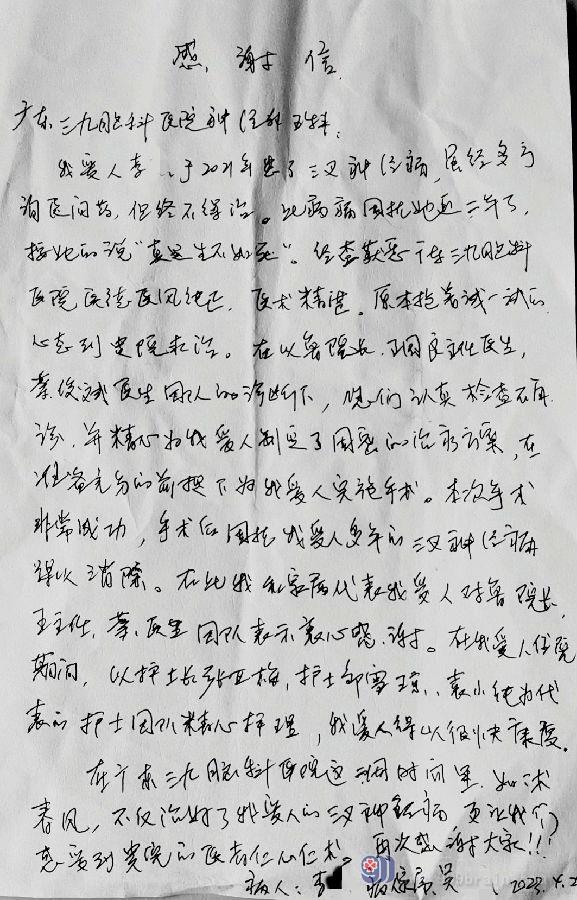 感谢信
广东三九脑科医院神经外科:
我爱人李 于2021年患了三叉神经病,虽经多方
询医问药,但终不得治。此病痛困扰她近二年了,
按她的说"真是生不如死"。经查获悉广东三九脑科
医院医德医风纯正,医术精湛。原本抱着试一试的
心态到贵院求治。在以鲁院长,王国良主任医生,
蔡俊斌医生团队的诊断下,他们认真检查
诊,并精心为我爱人制定了周密的治疗方案,在
准备充分的前提下为我爱人实施手术。本次手术
非常成功,手术后困扰我爱人多年的三叉神经病
得以消除。在此我和家属代表我爱人对鲁院长,
王主任,蔡医生团队表示衷心感谢。在我爱人住院
期间,以护士长张亚梅,护士邹雪琼、袁小纯为代
表的护士团队精心护理,我爱人得以很快康复。
在广东三九脑科医院这一周时间里,如沐
春风,不仅治好了我爱人的三叉神经病更让我们
感受到贵院的医者仁心仁术。再次感谢大家!!!
病人:李 病人家属:吴 2023.4.2